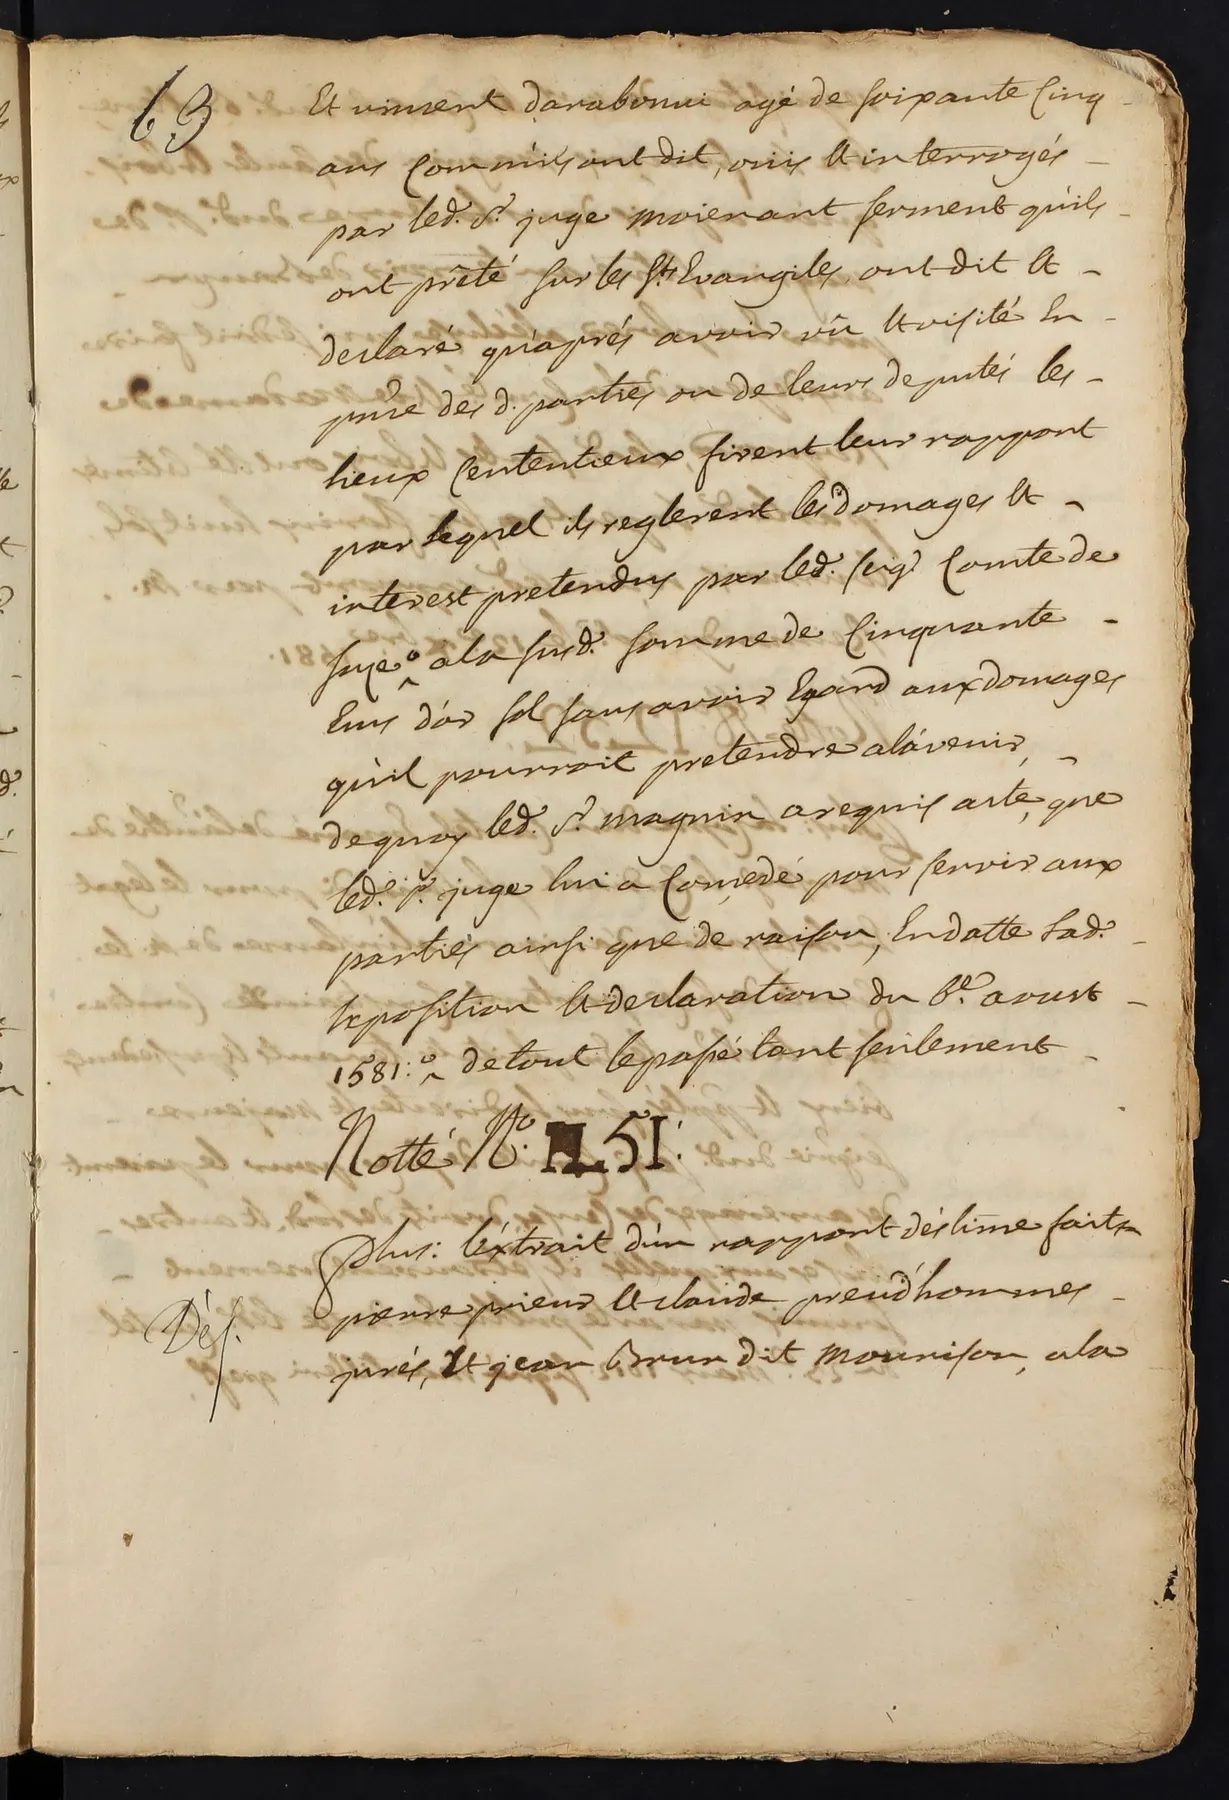 63
Et vincent darabonni agé de soixante Cinq
ans Commis ont dit, ouis Et interrogés
par led. Sr. juge moienant serment quils
ont prêté sur les Sts. Evangiles, ont dit Et
declaré qu'aprés avoir vû Et visité En
pnce des d. parties ou de leurs deputés les
lieux Contentieux firent leur rapport
par lequel ils reglerent les domages Et
interest pretendus par led. seigr. Comte de
suze, a la susd. somme de Cinquante
Ecus d'or sol sans avoir Egard aux domages
qu'il pourroit pretendre a l'avenir,
de quoy led. Sr. magnin a requis acte, que
led. Sr. juge lui a Concedé pour servir aux
parties ainsi que de raison, En datte Lad.
Exposition Et declaration du 6e. aoust
1581: de tout le passé tant seulement
Notté No. HL51:
Plus: l'éxtrait d'un rapport d'éstime fait
pierre prieur Et claude preud'hommes
Dés.
jurés, Et jean Brun dit mourison, a la